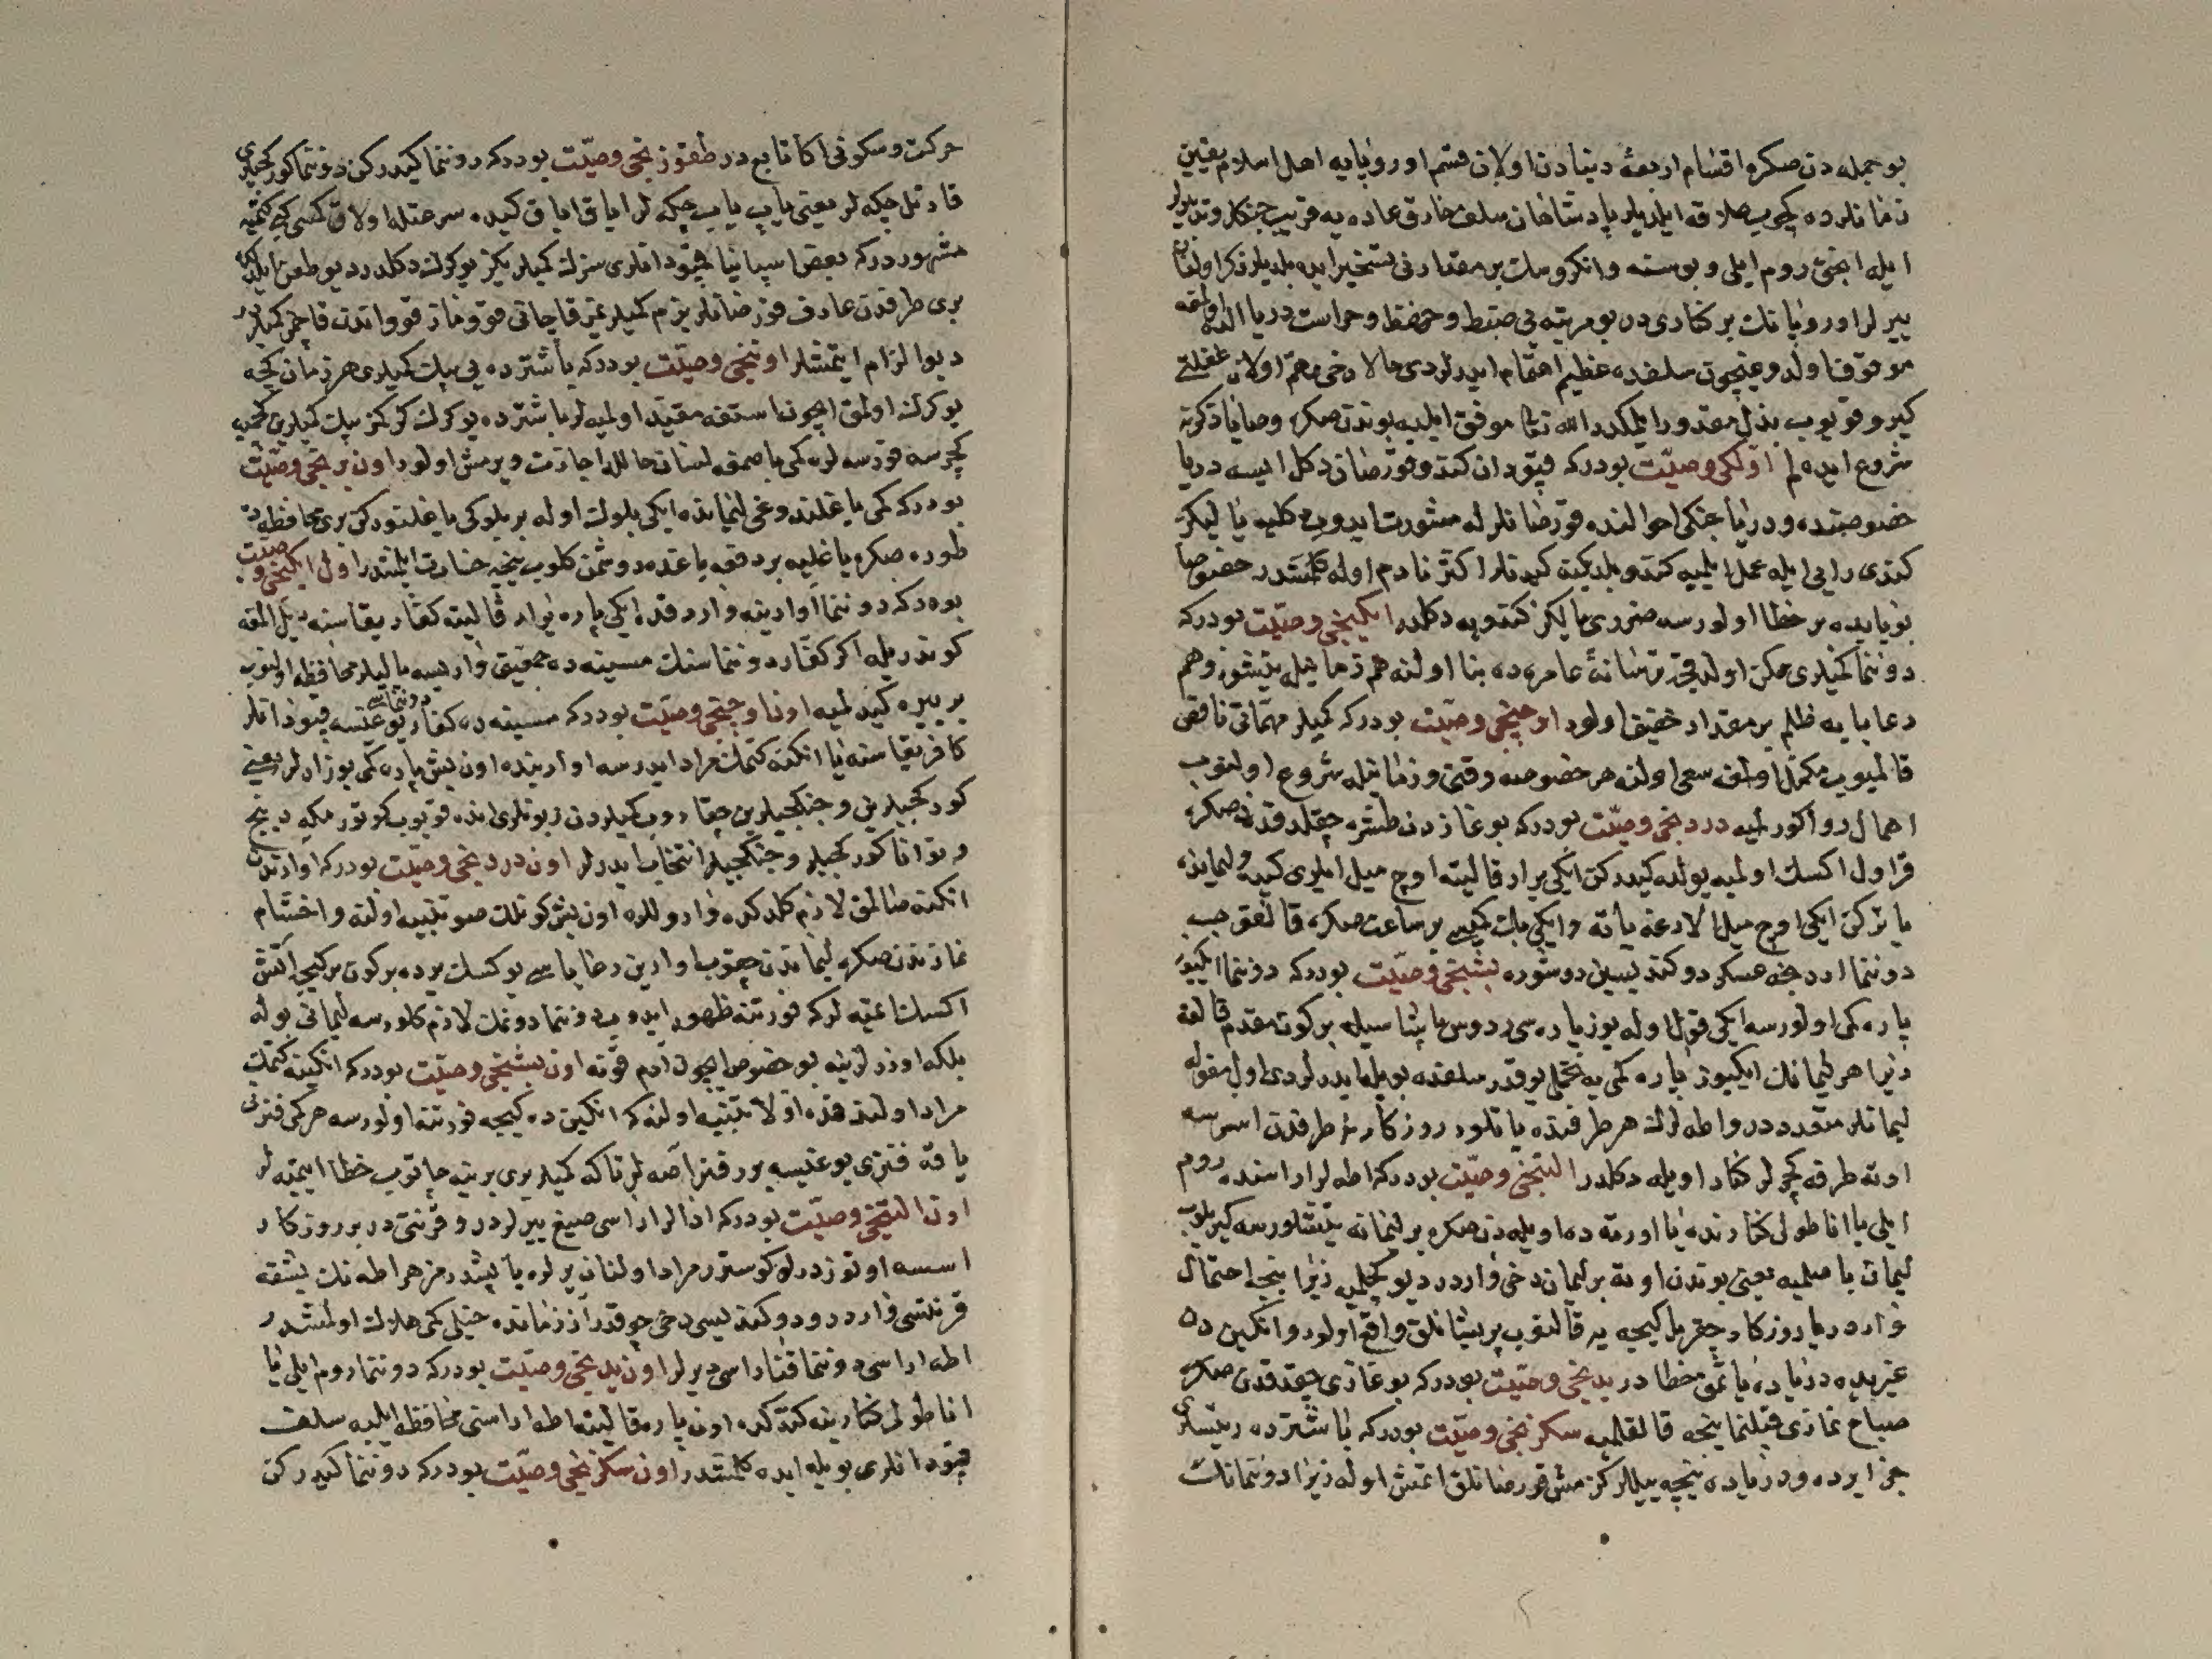 بو جمله دن صكره اقسام اربعهٔ دنیادن اولان قسم اوروپایه اهل اسلام یقین
زمانلرده كچوب علاقه ایلدیلر پادشاهان سلف خارق عاده یه قریب جنكلر و تدبیرلر
ایله ایچی روم ایلی و بوسنه و انكروسك بر مقدارنی تسخیر ایده بلدیلر ذكر اولنان
ییرلر اوروپانك بر كناری در بو مرتبه یی ضبط و حفظ و حراست دریا
موقوف اولدوغیچون سلفده عظیم اهتمام ایدرلردی حالا دخی مهم اولان غفلتی
كیرو قویوب بذل مقدور ایلمكدر الله تعالی موفق ایلیه بوندن صكره وصایا ذكرینه
شروع ایده لم اولكی وصیت بودركه قپودان كندو قورصان دكل ایسه دریا
خصوصنده و دریا جنكی احوالنده قورصانلر له مشورت ایدوب كلیه یا لیكز
كندی رایی ایله عمل ایلمیه كندو بلدیكنه كیدنلر اكثر نادم اوله كلمشدر خصوصا
بو بابده بر خطا اولورسه ضرری یالكز كندویه دكلدر ایكنجی وصیت بودركه
دوننما كمیلری ممكن اولدقجه ترسانهٔ عامره ده بنا اولنه هم زمانیله یتیشور و هم
رعایایه ظلم بر مقدار خفیف اولور اوچنجی وصیت بودركه كمیلر مهماتی ناقص
قالمیوب مكمل اولمغه سعی اولنه هر خصوصه وقتی و زمانیله شروع اولنوب
اهمال روا كورلمیه دردنجی وصیت بودركه بوغازدن طشره چقلدقدن صكره
قراول اكسك اولمیه یولده كیدركن ایكی پراره قالیته اوچ میل ایلری كیده و لیمانده
یاتركن ایكی اوچ میل الارغه یاته و ایكی بك كمیسی بر ساعت صكره قالقوب
دوننما اردنجه عسكر دوكندیسین دوشوره بشنجی وصیت بودركه دوننما ایكیوز
پاره كمی اولورسه ایكی قول اوله یوز پاره سی ردوس پاشاسیله بر كون مقدم قالقه
زیرا هر لیمانك ایكیوز پاره كمی یه تحملی یوقدر سلفده بویله ایدرلردی اول مقوله
لیمانلر متعدددر و اطه لرك هر طرفنده یاتلور روزكار بر طرفدن اسرسه
اوته طرفه كچرلر كنار اویله دكلدر التنجی وصیت بودركه اطه لر اراسنده روم
ایلی یا اناطولی كنارنده یا اورته ده اویله دن صكره بر لیمانه یتیشلورسه كیریلوب
لیمان باصلمیه یعنی بوندن اوته بر لیمان دخی واردر دیو كچیلمیه زیرا نیجه احتمال
واردر یا روزكار چقر یا كیجه یه قالنوب پریشانلق واقع اولور و انكین ده
غیریده دریاده یاتمق خطادر یدنجی وصیت بودركه بوغازی چقدقدن صكره
صباح نمازی قیلنماینجه قالقلمیه سكزنجی وصیت بودركه باشترده رئیسلری
جزایرده و دریاده نیجه ییللر كزمش قورصانلق اتمش اوله زیرا دوننمانك
حركت و سكونی اكا تابع در طقوزنجی وصیت بودركه دوننما كیدركن دوننما كوركجیلری
قادتل چكه لر یعنی یاپ یاپ چكه لر ایاق ایاق كیده سرعتله اولاق كبی كتمیه
مشهوردركه بعض اسپانیا قپودانلری سزك كمیلریكز یوكرك دكلدر دیو طعن ایلدكده
بری طرفدن عارف قورصانلر بزم كمیلرمز قاچانی قوومازقووندن قاچمز كمیلردر
دیو الزام ایتمشلر اوننجی وصیت بودركه باشترده یی بك كمیلری هر زمان كچه
یوكرك اولمق ایچون استفه مقید اولمیه لر باشترده یوكرك كركمز بك كمیلرین كچمیه
كچرسه قورسه لره كمی باصمغه لسان حالله اجازت ویرمش اولور اون برنجی وصیت
بودركه كمی یاغلندوغی لیمانده ایكی بلوك اوله بر بلوكی یاغلنوركن بری محافظه ده
طوره صكره یاغلیه بر دفعه یاغده دوشمن كلوب نیجه خسارت ایلمشدر اون ایكنجی وصیت
بودركه دوننما اوارینه وارردقده ایكی پاره پرار قالیته كفار یقاسنه دیل المغه
كوندریله اكر كفار دوننماسنك مسینه ده جمعیتی وار ایسه یالیلر محافظه اولنوب
بر ییره كیدلمیه اون اوچنجی وصیت بودركه مسینه ده كفار دوننماسی یوغیسه قپودانلر
كافر یقاسنه یا انكینه كتمك مراد ایدرسه اوارینده اون بش پاره كمی بوزارلر یعنی
كوركجیلرین و جنكجیلرین چقاروب كمیلردن زبونلری انده قویوب كوتورمیه دینج
و توانا كوركجیلر و جنكجیلر انتخاب ایدرلر اون دردنجی وصیت بودركه اواریندن
انكینه صالمق لازم كلدكده واروللره اون بش كونلك صو تنبیه اولنه و اخشام
نمازندن صكره لیماندن چقوب اوارین رعایاسی یوكسك یرده بر كون بر كیجه اتش
اكسك اتمیه لر كه فورتنه ظهور ایدوب دوننما دونمك لازم كلورسه لیمانی بوله
بلكه اوزرلرینه بو خصوص ایچون ادم قونه اون بشنجی وصیت بودركه انكینه كتمك
مراد اولندقده اولا تنبیه اولنه كه انكین ده كیجه فورتنه اولورسه هر كمی فنرنی
یاقه فنری یوغیسه بر فنر آصه لر تا كه كمیلر بری برینه چاتوب خطا ایتمیه لر
اون التنجی وصیت بودركه اطالر اراسی صیغ ییرلردر و قرنتی در بر روزكار
اسسه اوتوز درلو كوستررمراد اولنان یرلره یاپشدرمز هر اطه نك بشقه
قرنتسی واردر و دوكندیسی دخی چوقدر آز زمانده خیلی كمی هلاك اولمشدر
اطه اراسی دوننما فناراسی دیرلر اون یدنجی وصیت بودركه دوننما روم ایلی یا
اناطولی كنارینه كتدكده اون پاره قالیته اطه اراسنی محافظه ایلیه سلف
قپودانلری بویله ایده كلمشدر اون سكزنجی وصیت بودركه دوننما كیدركن